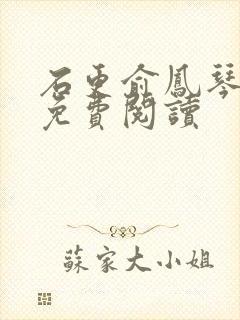 石更俞鳳琴
免費閱讀
蘇家大小姐